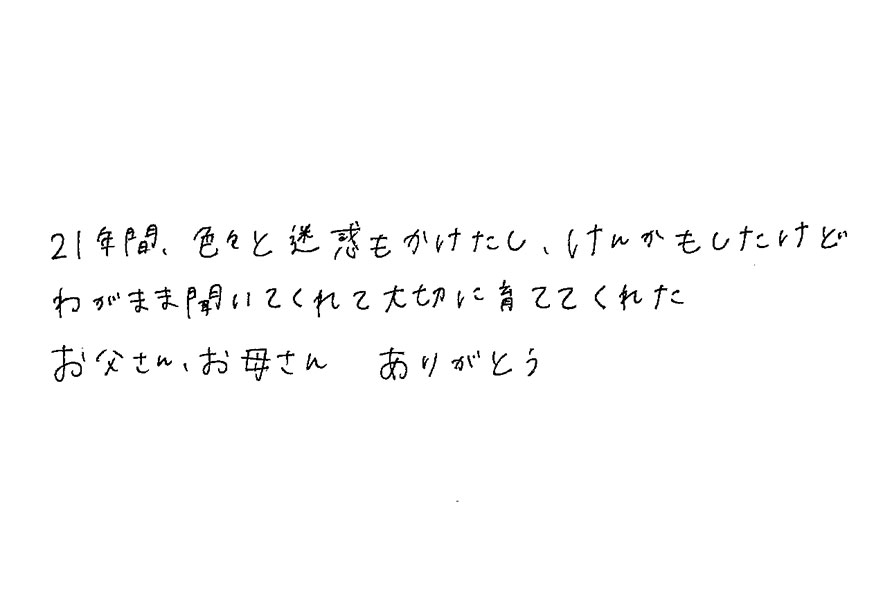 21年間、色々と迷惑もかけたし、けんかもしたけど
わがまま聞いてくれて大切に育ててくれた
お父さん、お母さん　ありがとう